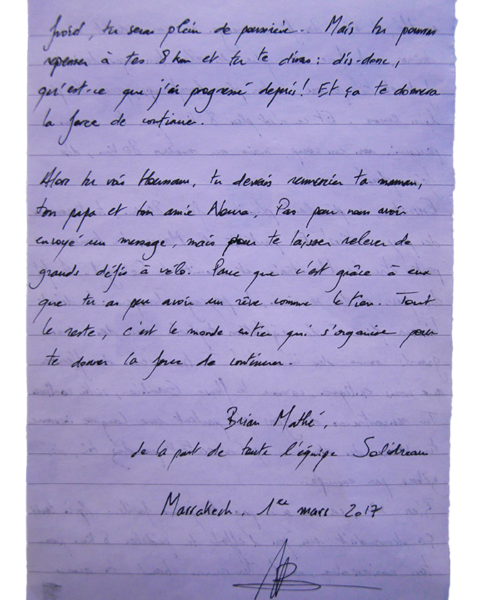 froid, tu seras plein de poussière. Mais tu pourras
repenser à tes 8 km et tu te diras : dis-donc,
qu'est-ce que j'ai progressé depuis ! Et ça te donnera
la force de continuer.
Alors tu vois Houmam, tu devrais remercier ta maman,
ton papa et ton amie Noura. Pas pour nous avoir
envoyé un message, mais pour te laisser relever de
grands défis à vélo. Parce que c'est grâce à eux
que tu as pu avoir un rêve comme le tien. Tout
le reste, c'est le monde entier qui s'organise pour
te donner la force de continuer.
Brian Mathé,
de la part de toute l'équipe Solidream
Marrakech, 1er mars 2017